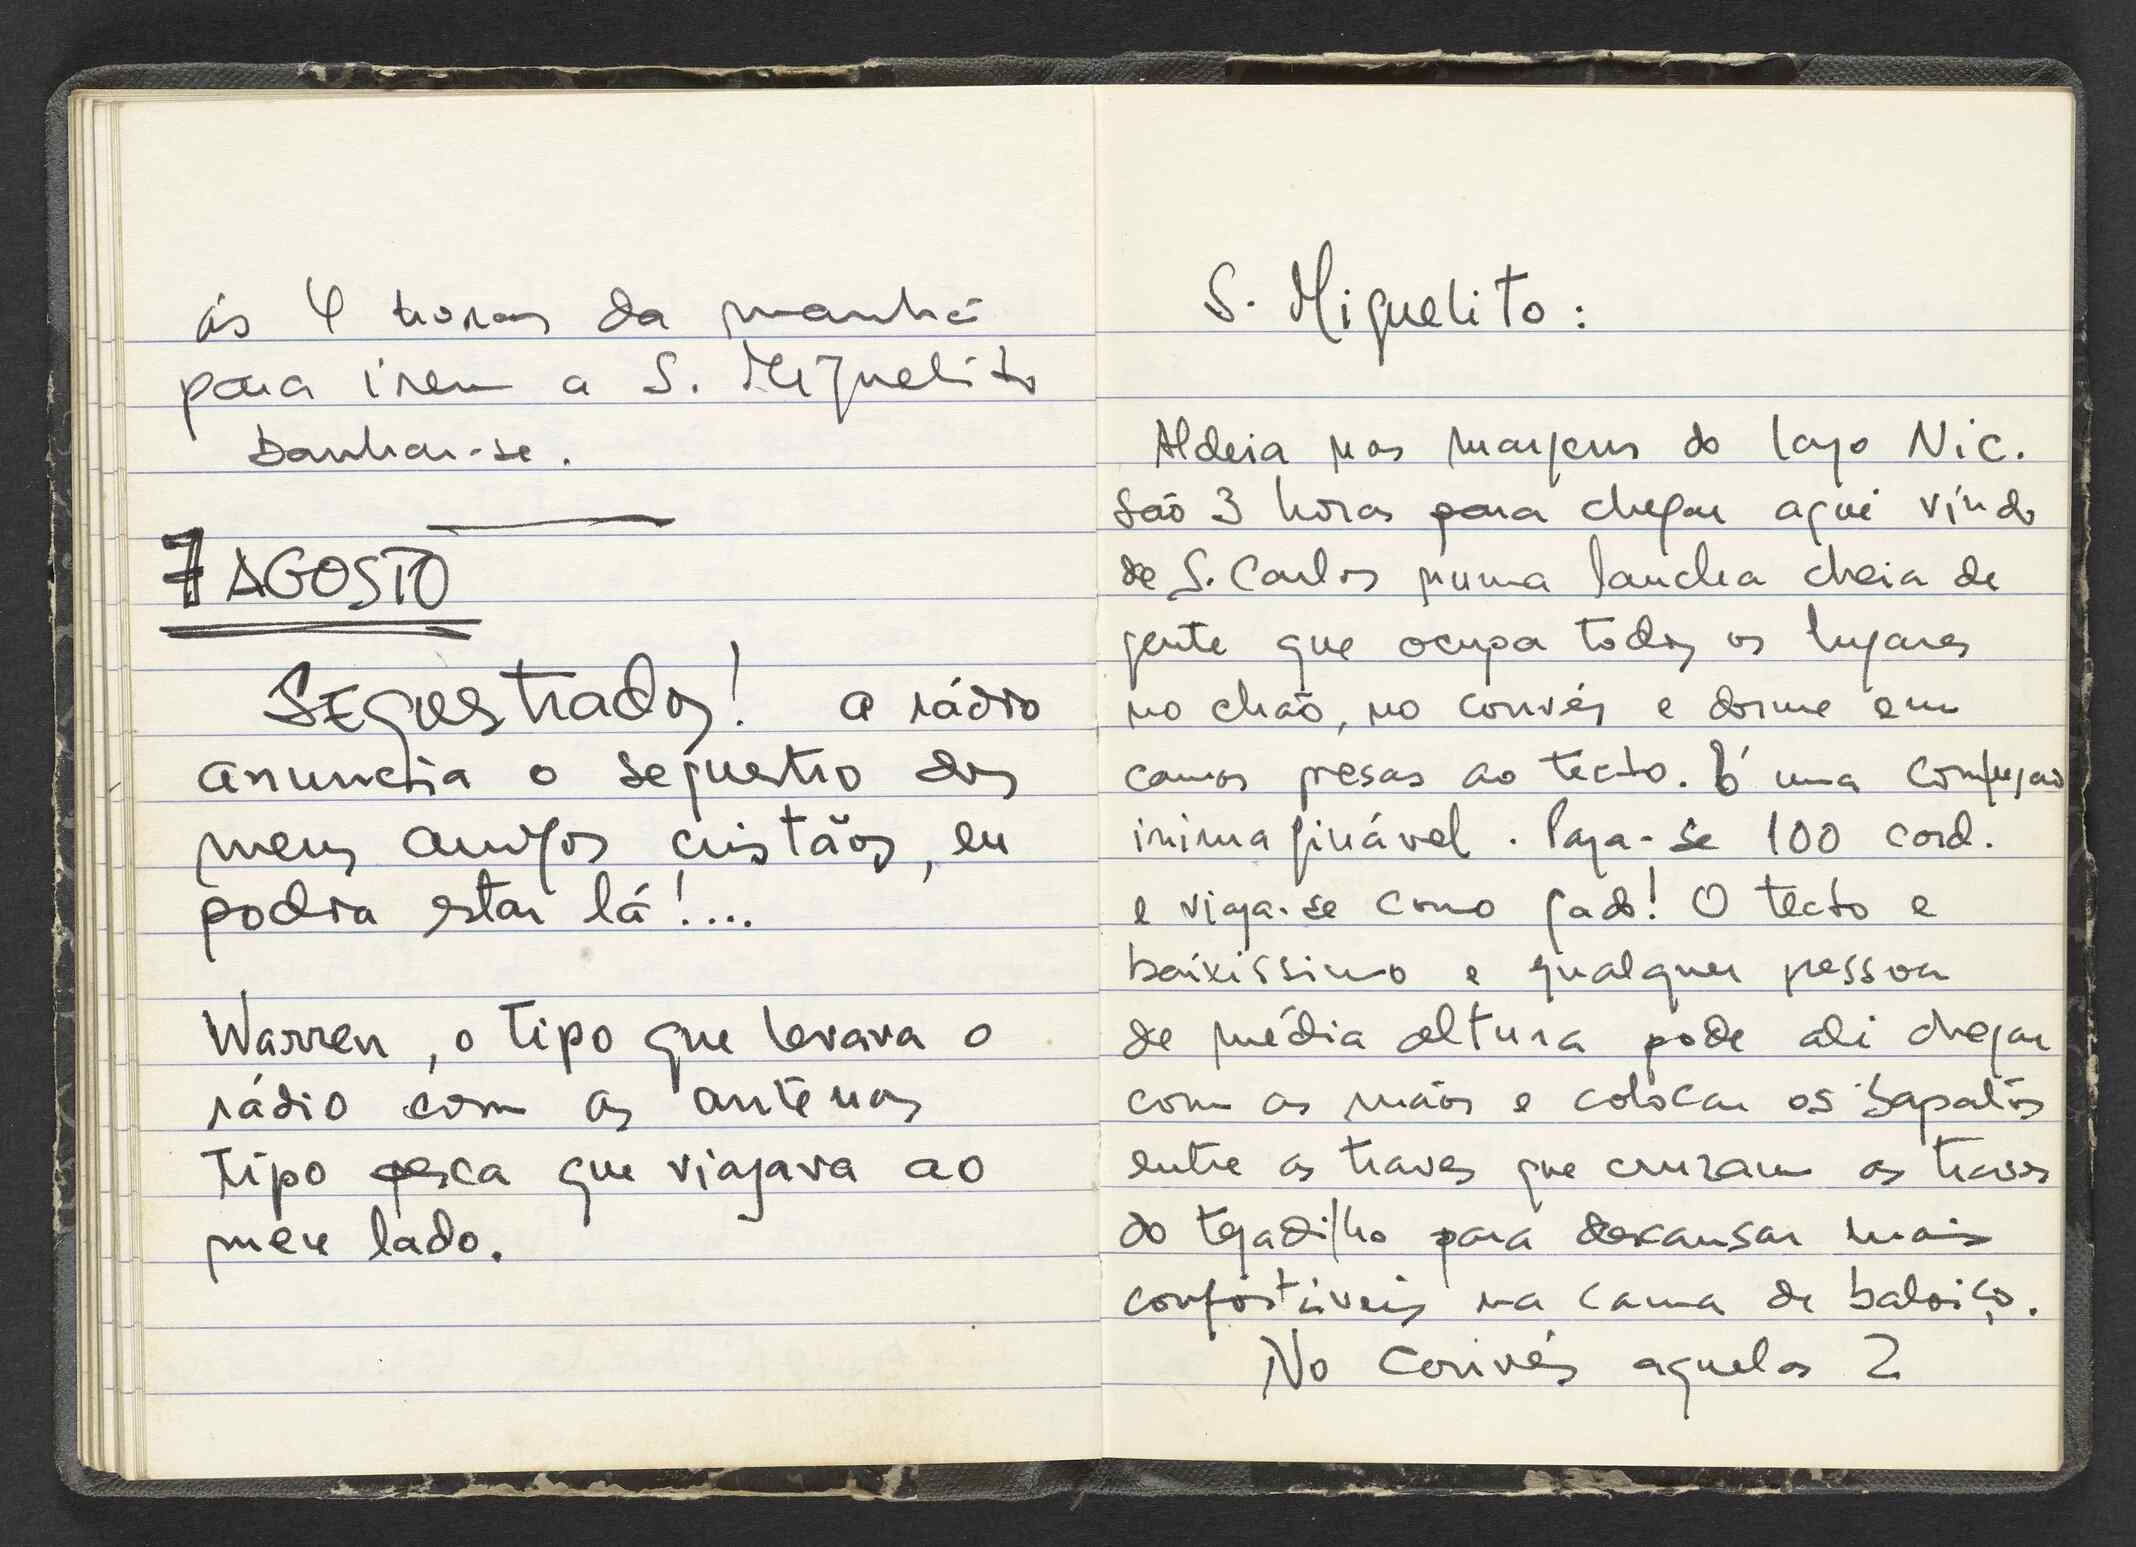 ás 4 horas da manhã
para irem a S. Miguelito
banhar-se.
7 AGOSTO
SEquestrados! a rádio
anuncia o sequestro dos
meus amigos cristãos, eu
podia estar lá!...
Warren, o tipo que levava o
rádio com as antenas
tipo pesca que viajava ao
meu lado.
S. Miguelito:
Aldeia nas margens do lago Nic.
São 3 horas para chegar aqui vindo
de S. Carlos numa lancha cheia de
gente que ocupa todos os lugares
no chão, no convés e dorme em
camas presas ao tecto. É uma confusão
inimaginável. Paga-se 100 cord.
e viaja-se como gado! O tecto e
baixissimo e qualquer pessoa
de média altura pode ali chegar
com as mãos e colocar os sapatos
entre as traves que cruzam as traves
do tejadilho para descansar mais
confortáveis na cama de baloiço.
No convés aquelas 2